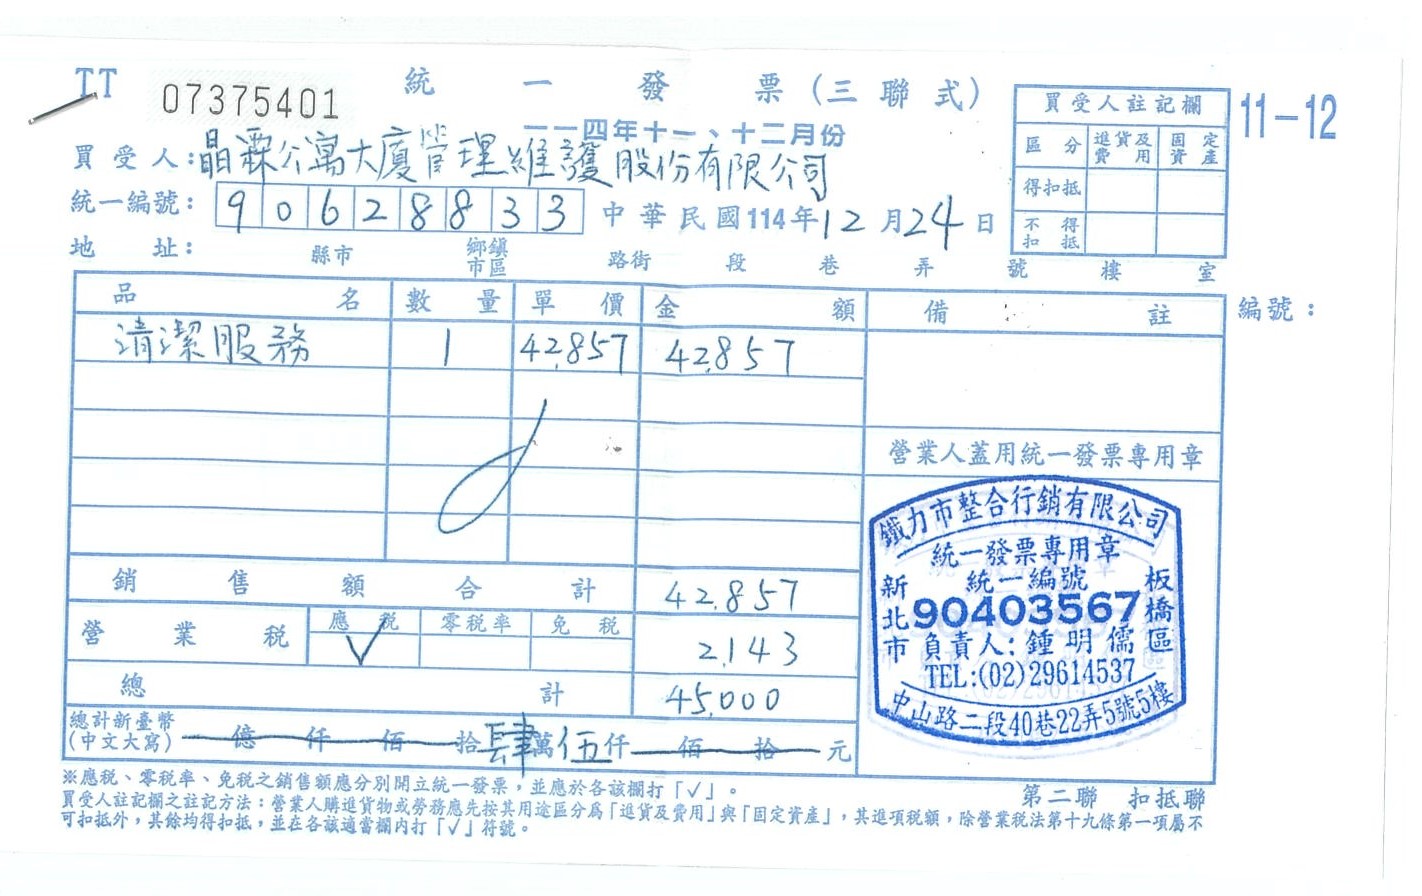 TT 07375401 統一發票(三聯式)
一一四年十一、十二月份
11-12
買受人註記欄
區分 進貨及費用 固定資產
得扣抵
不得扣抵
買受人:晶霖公寓大廈管理維護股份有限公司
統一編號: 90628833 中華民國114年12月24日
地址: 縣市 鄉鎮市區 路街 段 巷 弄 號 樓 室
品名 數量 單價 金額 備註 編號:
清潔服務 1 42,857 42,857
營業人蓋用統一發票專用章
銷售額合計 42,857
營業稅 應稅 零稅率 免稅
V 2,143
總計 45,000
總計新臺幣(中文大寫) 億仟佰拾肆萬伍仟佰拾元
鐵力市整合行銷有限公司
統一發票專用章
統一編號
90403567
新北市 板橋區
負責人:鍾明儒
TEL:(02)29614537
中山路二段40巷22弄5號5樓
※應稅、零稅率、免稅之銷售額應分別開立統一發票,並應於各該欄打「√」。
第二聯 扣抵聯
買受人註記欄之註記方法:營業人購進貨物或勞務應先按其用途區分為「進貨及費用」與「固定資產」,其進項稅額,除營業稅法第十九條第一項屬不
可扣抵外,其餘均得扣抵,並在各該適當欄內打「√」符號。